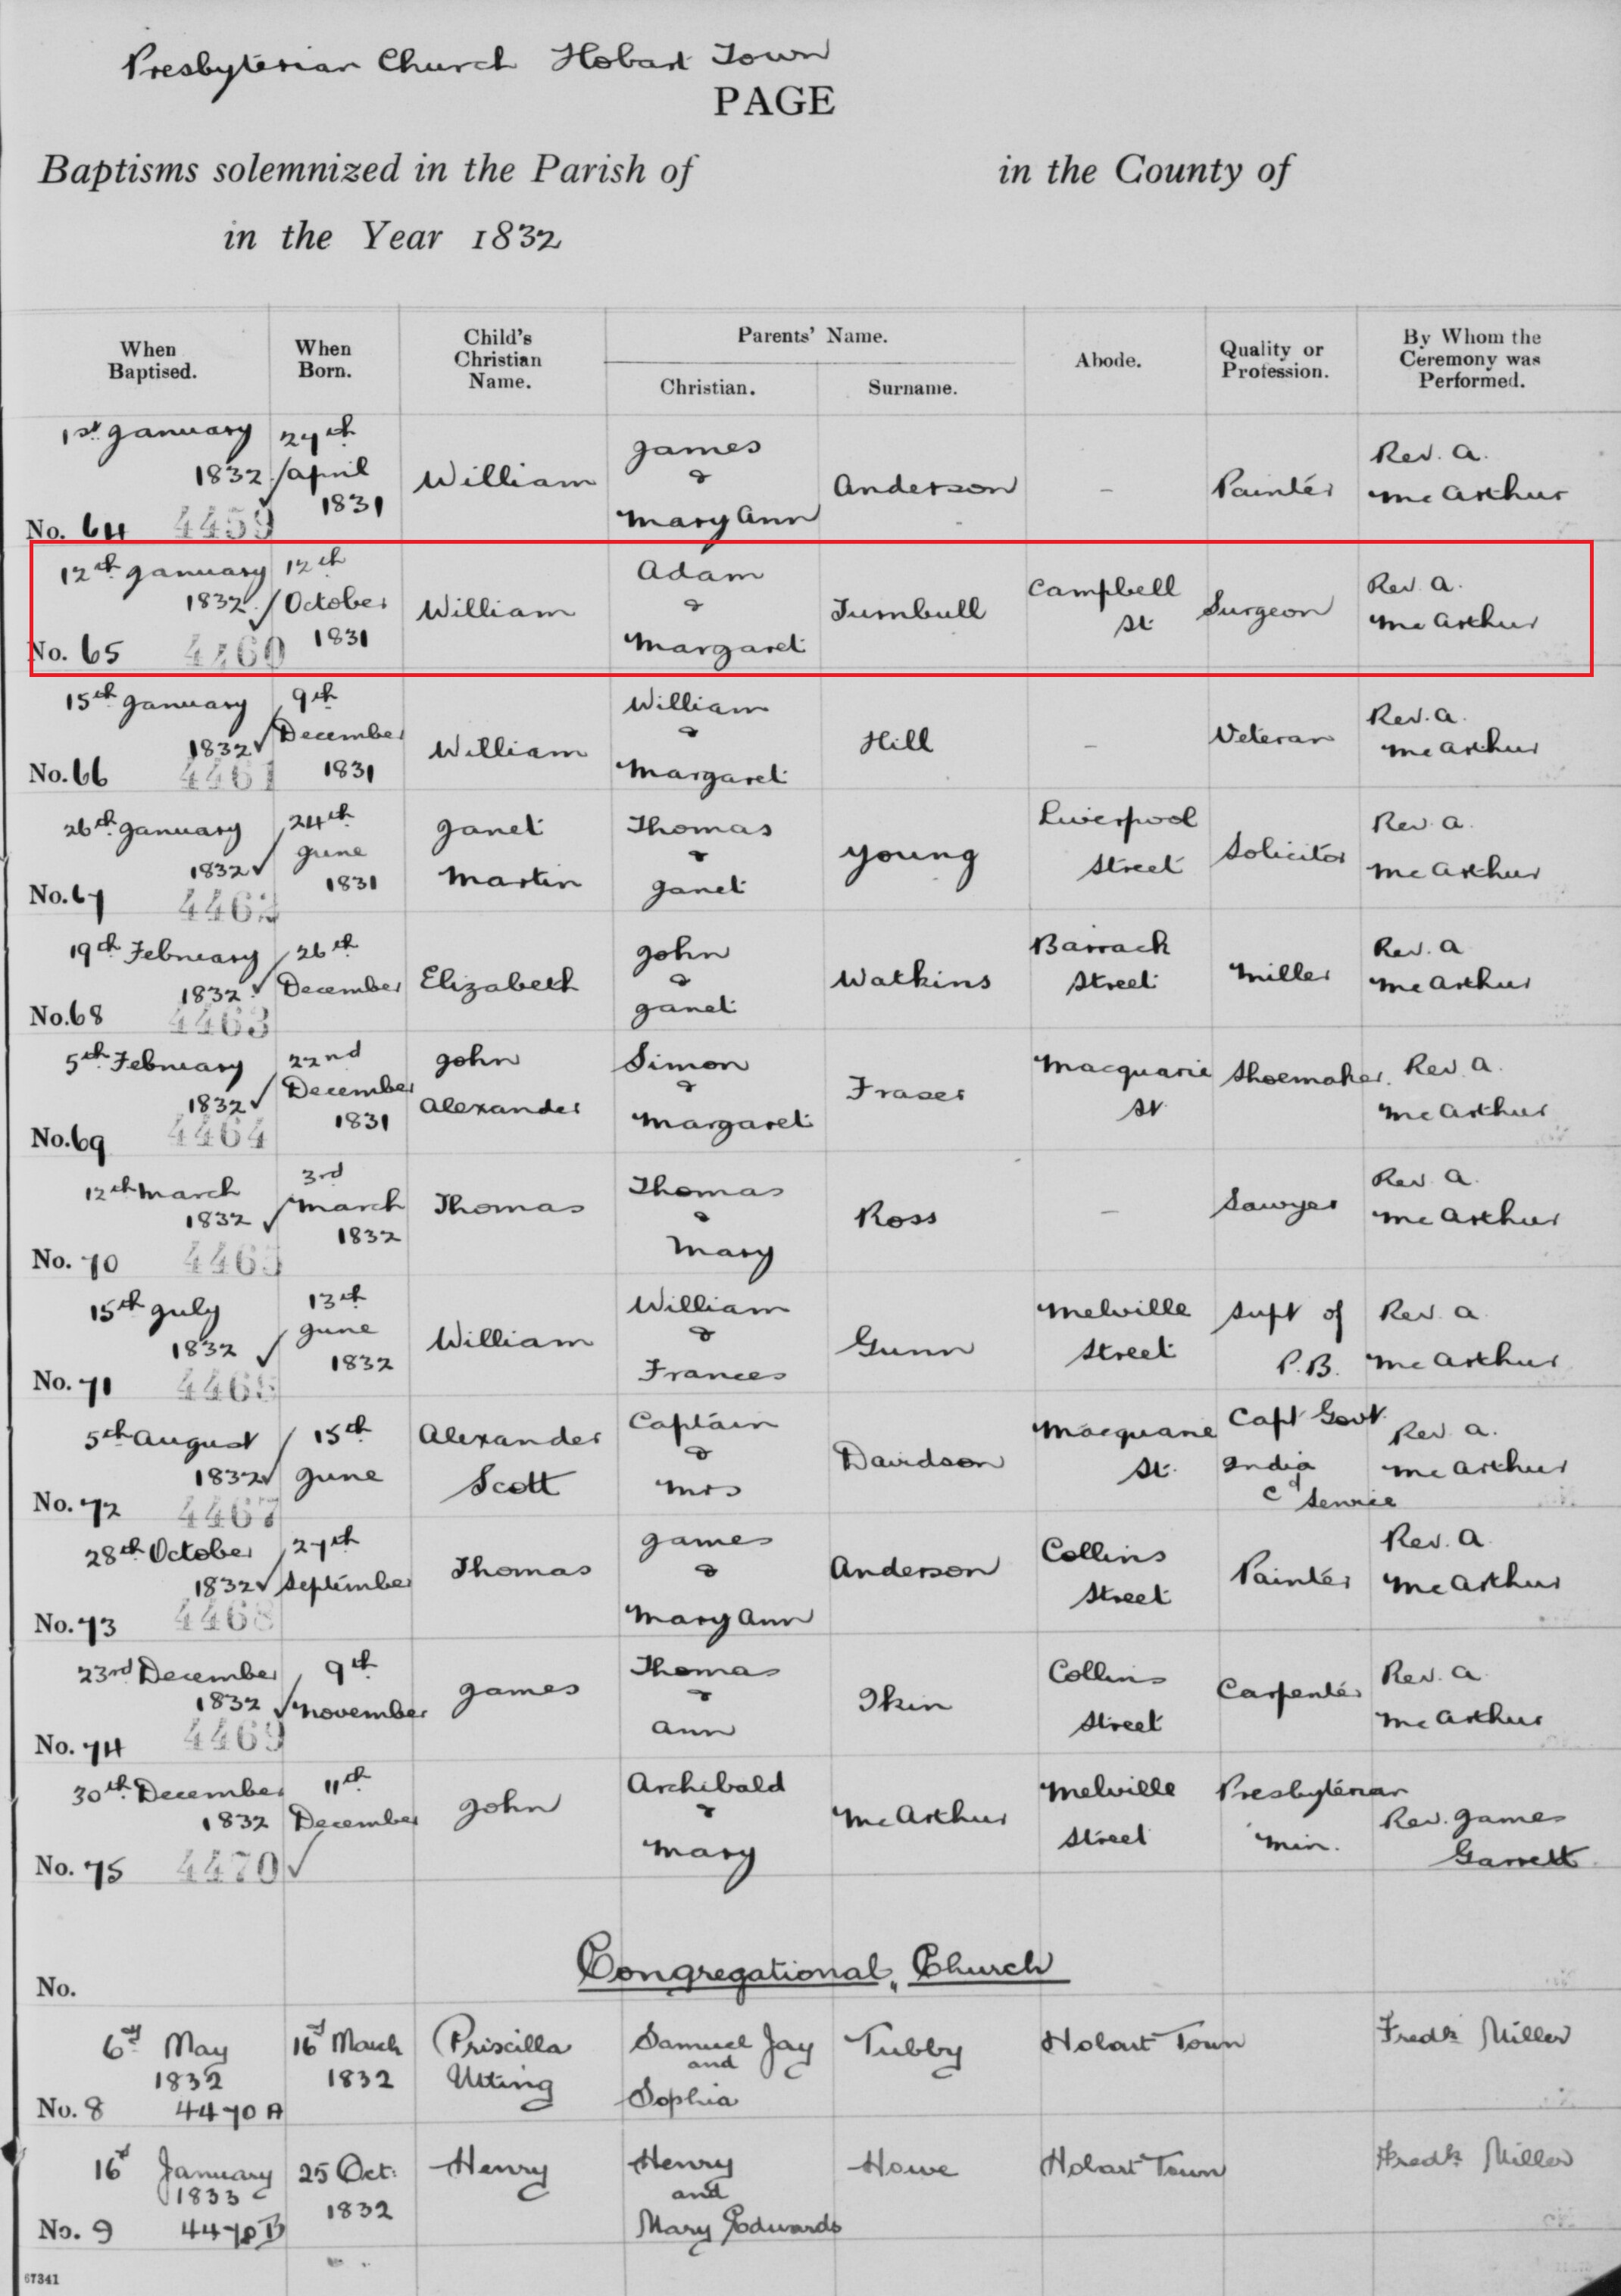 Presbyterian Church Hobart Town
PAGE
Baptisms solemnized in the Parish of in the County of
in the Year 1832
When Baptised. When Born. Child's Christian Name. Parents' Name. Christian. Surname. Abode. Quality or Profession. By Whom the Ceremony was Performed.
1st January 1832 27th april 1831 William James & Mary Ann Anderson - Painter Rev. A. McArthur
No. 64 4459
12th January 1832 12th October 1831 William Adam & Margaret Turnbull Campbell St Surgeon Rev. A. McArthur
No. 65 4460
15th January 1832 9th December 1831 William William & Margaret Hill - Veteran Rev. A. McArthur
No. 66 4461
26th January 1832 24th June 1831 Janet Martin Thomas & Janet Young Liverpool Street Solicitor Rev. A. McArthur
No. 67 4462
19th February 1832 26th December Elizabeth John & Janet Watkins Barrack Street Miller Rev. A McArthur
No. 68 4463
5th February 1832 22nd December 1831 John Alexander Simon & Margaret Fraser Macquarie St Shoemaker. Rev. A. McArthur
No. 69 4464
12th March 1832 3rd March 1832 Thomas Thomas & Mary Ross - Sawyer Rev. A. McArthur
No. 70 4465
15th July 1832 13th June 1832 William William & Frances Gunn Melville Street Supt of P.B. Rev. A McArthur
No. 71 4466
5th August 1832 15th June Alexander Scott Captain & Mrs Davidson Macquarie St. Capt Govt India Cd Service Rev. A. McArthur
No. 72 4467
28th October 1832 27th September Thomas James & Mary Ann Anderson Collins Street Painter Rev. A McArthur
No. 73 4468
23rd December 1832 9th November James Thomas & Ann Ikin Collins Street Carpenter Rev. A McArthur
No. 74 4469
30th December 1832 11th December John Archibald & Mary McArthur Melville Street Presbyterian Min. Rev. James Garrett
No. 75 4470
Congregational Church
No.
6th May 1832 16th March 1832 Priscilla Utting Samuel Jay and Sophia Tubby Hobart Town Fredk Miller
No. 8 4470 A
16th January 1833 25 Oct: 1832 Henry Henry and Mary Edwards Howe Hobart Town Fredk Miller
No. 9 4470 B
67341